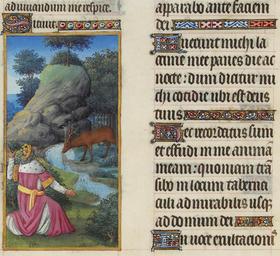 adiuuandum me respice.
Sitiuit
apparabo ante faciem
dei
Fuerunt michi la
crime mee panes die ac
nocte: dum dicitur mi
chi cotidie ubi est deus
tuus
Hec recordatus sum
et effudi in me anima
meam: quoniam tra
sibo in locum taberna
culi admirabilis usq;
ad domum dei
In uoce exultationi